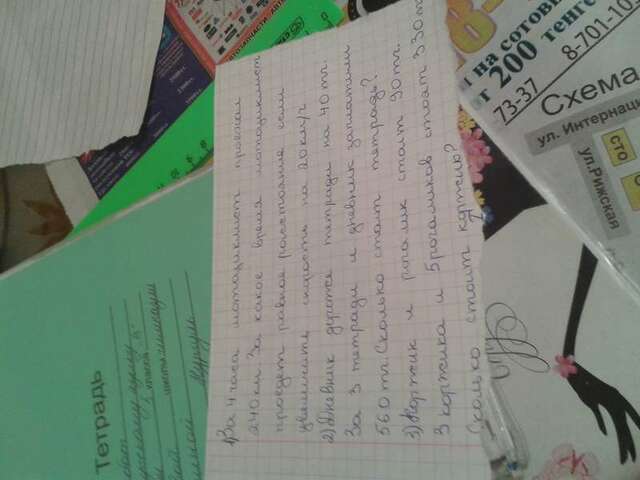 1) За 4 часа мотоциклист проехал
240 км. За какое время мотоциклист
проедет равное расстояние если
увеличить скорость на 20 км/ч
2) Дневник дороже тетради на 40 тг.
За 3 тетради и дневник заплатили
560 тг. Сколько стоит тетрадь?
3) Коржик и рогалик стоит 90 тг.
3 коржика и 5 рогаликов стоят 330 тг
Сколько стоит коржик?
Тетрадь
на сотовы
от 200 тенге
73-37
8-701-10
Схема
ул. Интернаци
ул.Рижская
сто